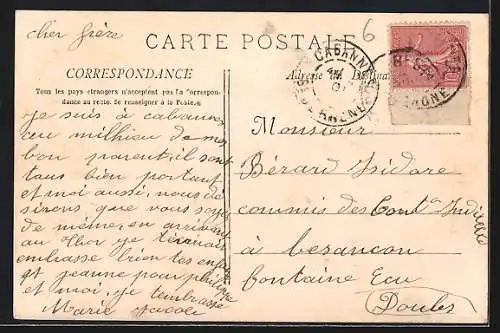 cher frère
6
CARTE POSTALE
CORRESPONDANCE
Tous les pays étrangers n'acceptent pas la Correspon-
dance au recto. Se renseigner à la Poste.
Adresse du Destina
CABANNES
RHONE
je suis à cabannes
au milhieu de mes
bon parent, il sont
tous bien portant
et moi aussi, nous dé
sirons que vous soyez
de même, en arrivant
au Thor je
embrasse bien tes enfants
et jeanne pour
et moi, je t'embrasse
Marie
Monsieur
Bérard Isidore
commis des Contons Indirectes
à besancon
fontaine Ecu
Doubs